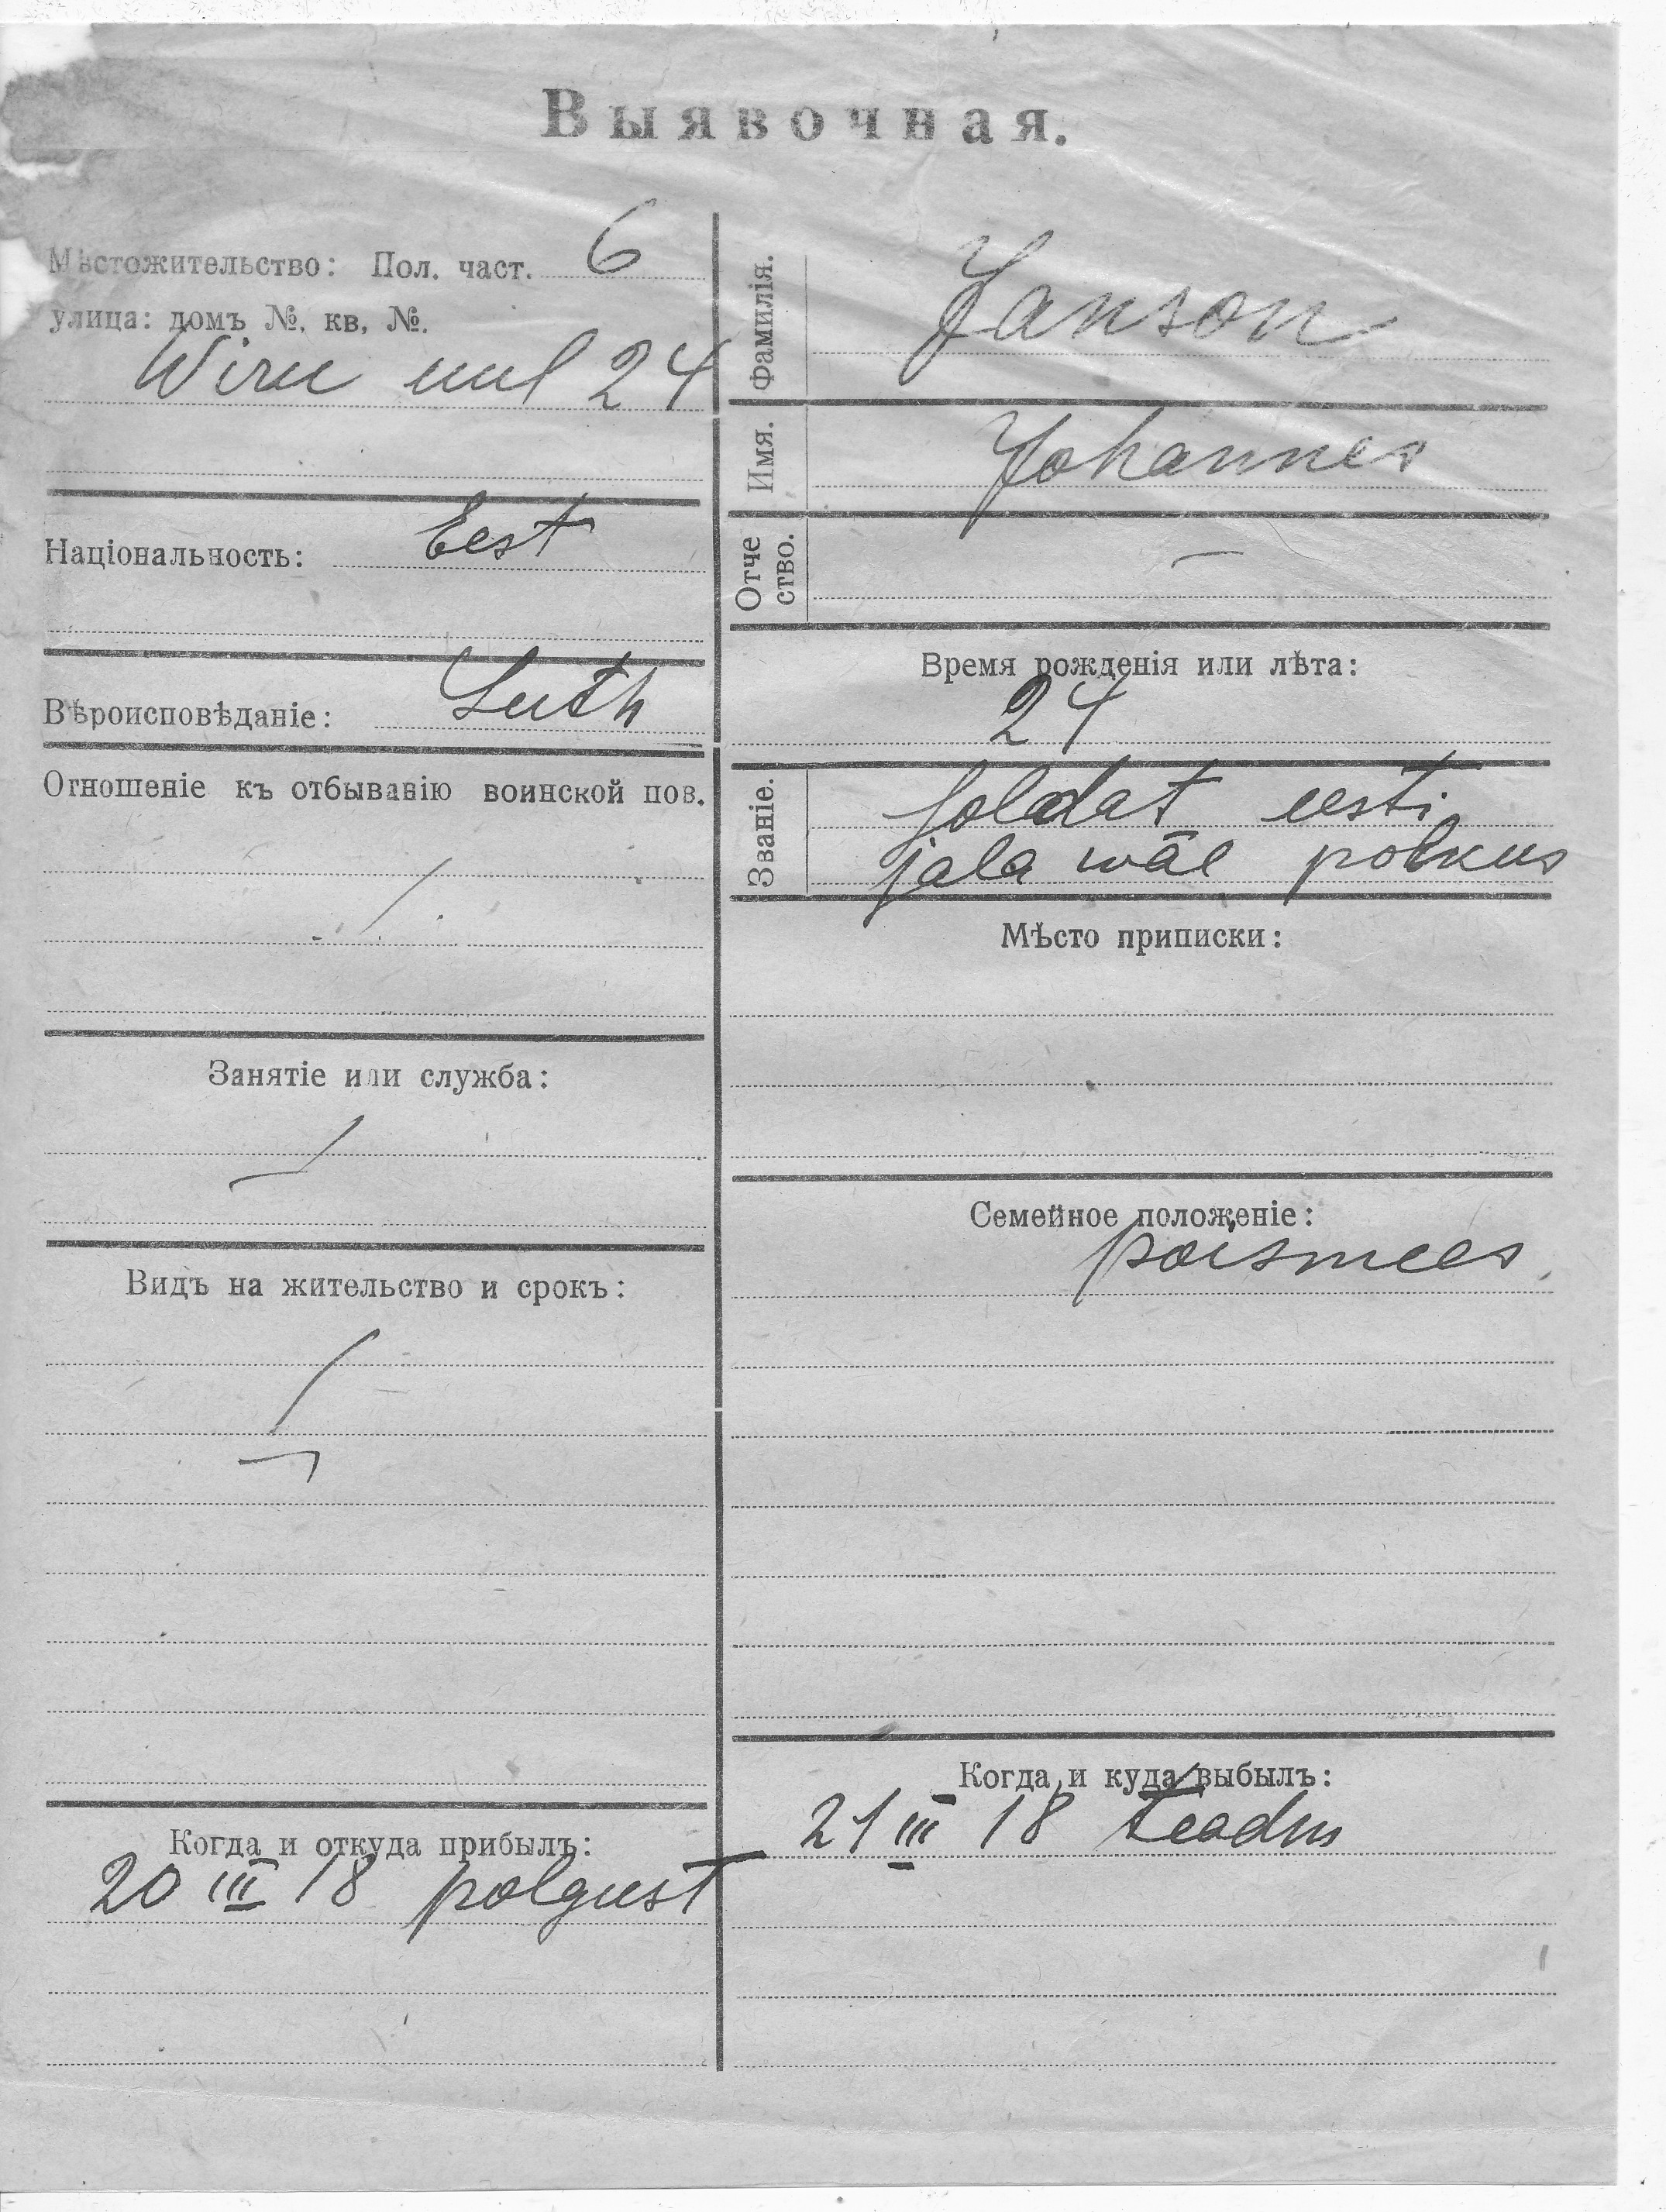 Выявочная.
Мѣстожительство: Пол. част. 6
улица: домъ №. кв, №.
Wiru uul 24
Національность: Eest
Вѣроисповѣданіе: Luth
Отношеніе къ отбыванію воинской пов.
Занятіе или служба:
Видъ на жительство и срокъ:
Когда и откуда прибылъ:
20 III 18 polgust
Фамилія. Janson
Имя. Johannes
Отче
ство. —
Время рожденія или лѣта:
24
Званіе. soldat eesti
jala wäe polkus
Мѣсто приписки:
Семейное положеніе:
poismees
Когда и куда выбылъ:
21 III 18